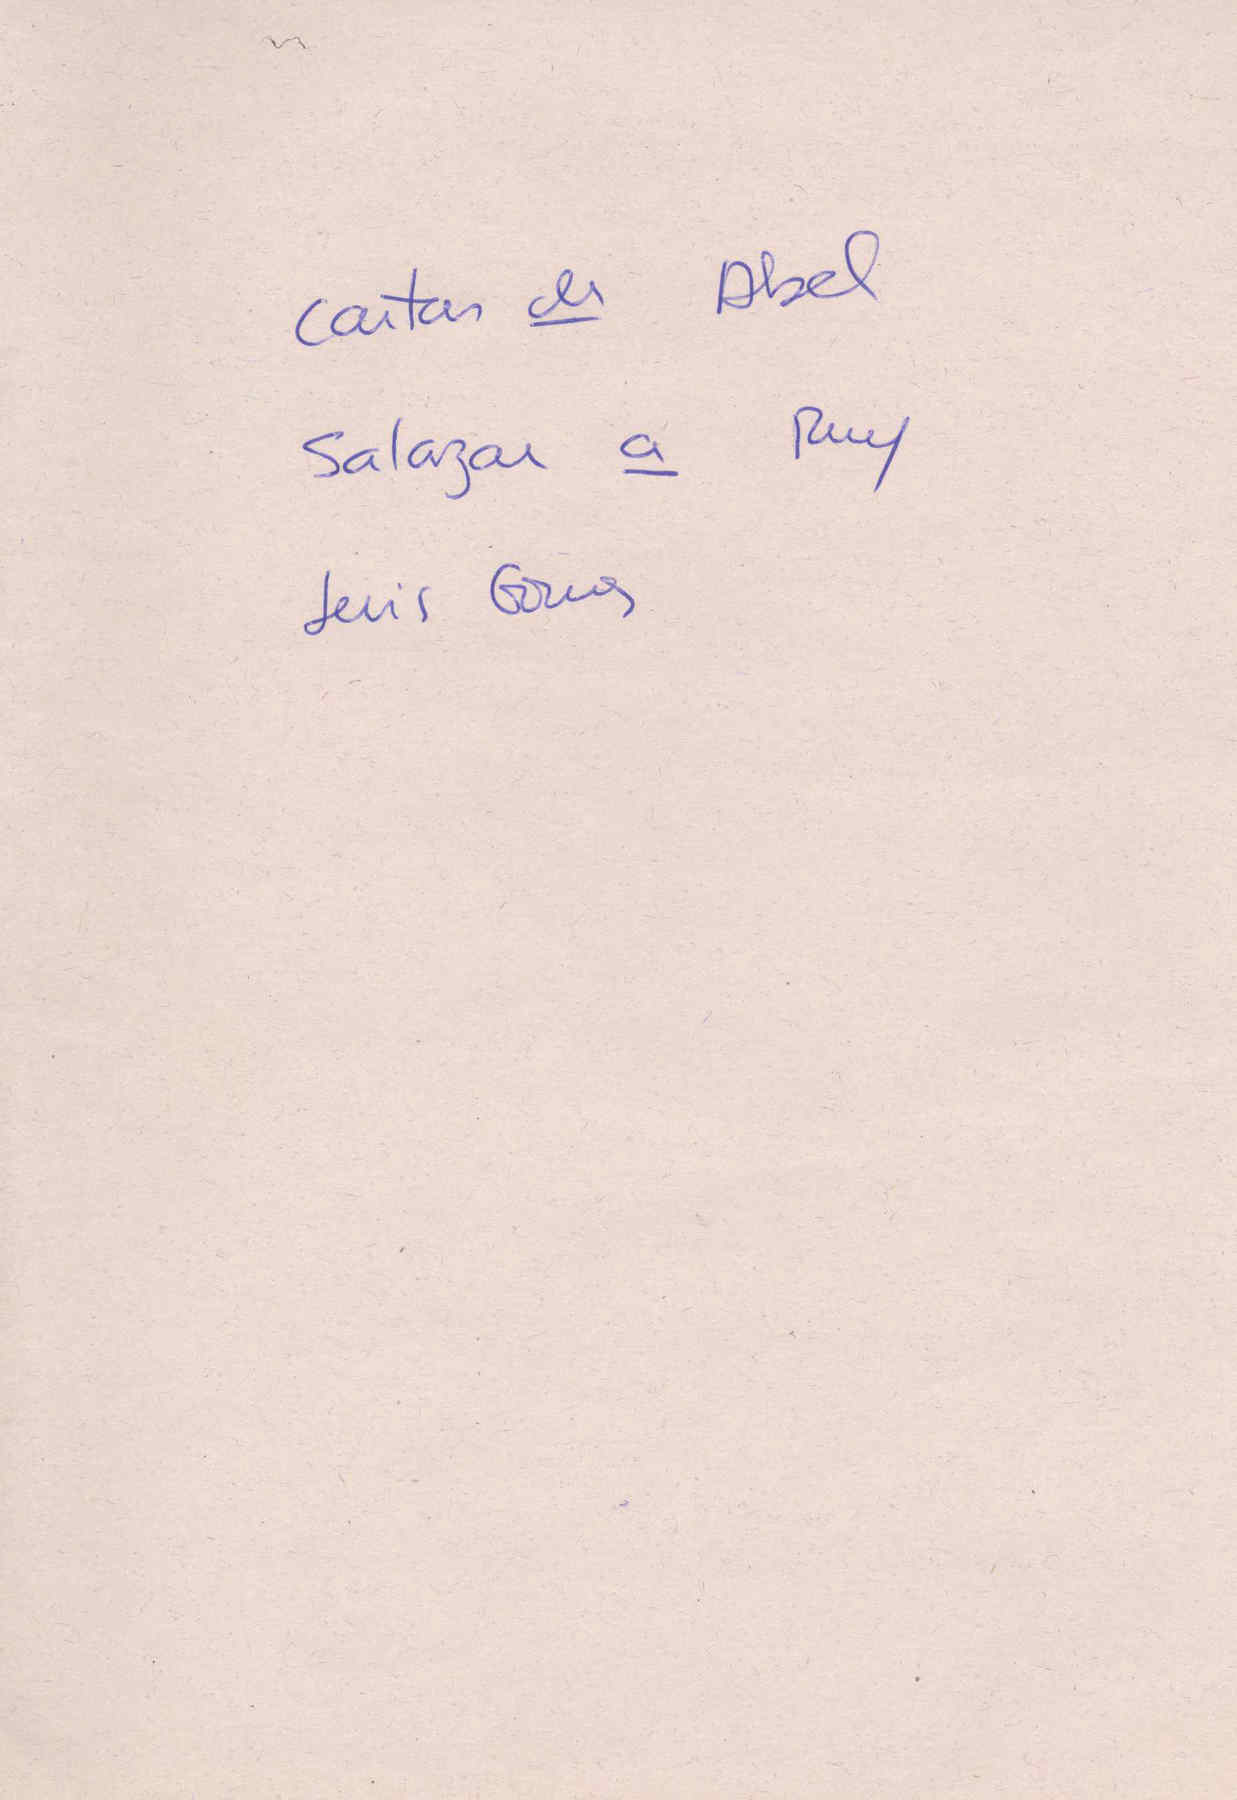 Cartas de Abel
Salazar a Ruy
Luis Gomes